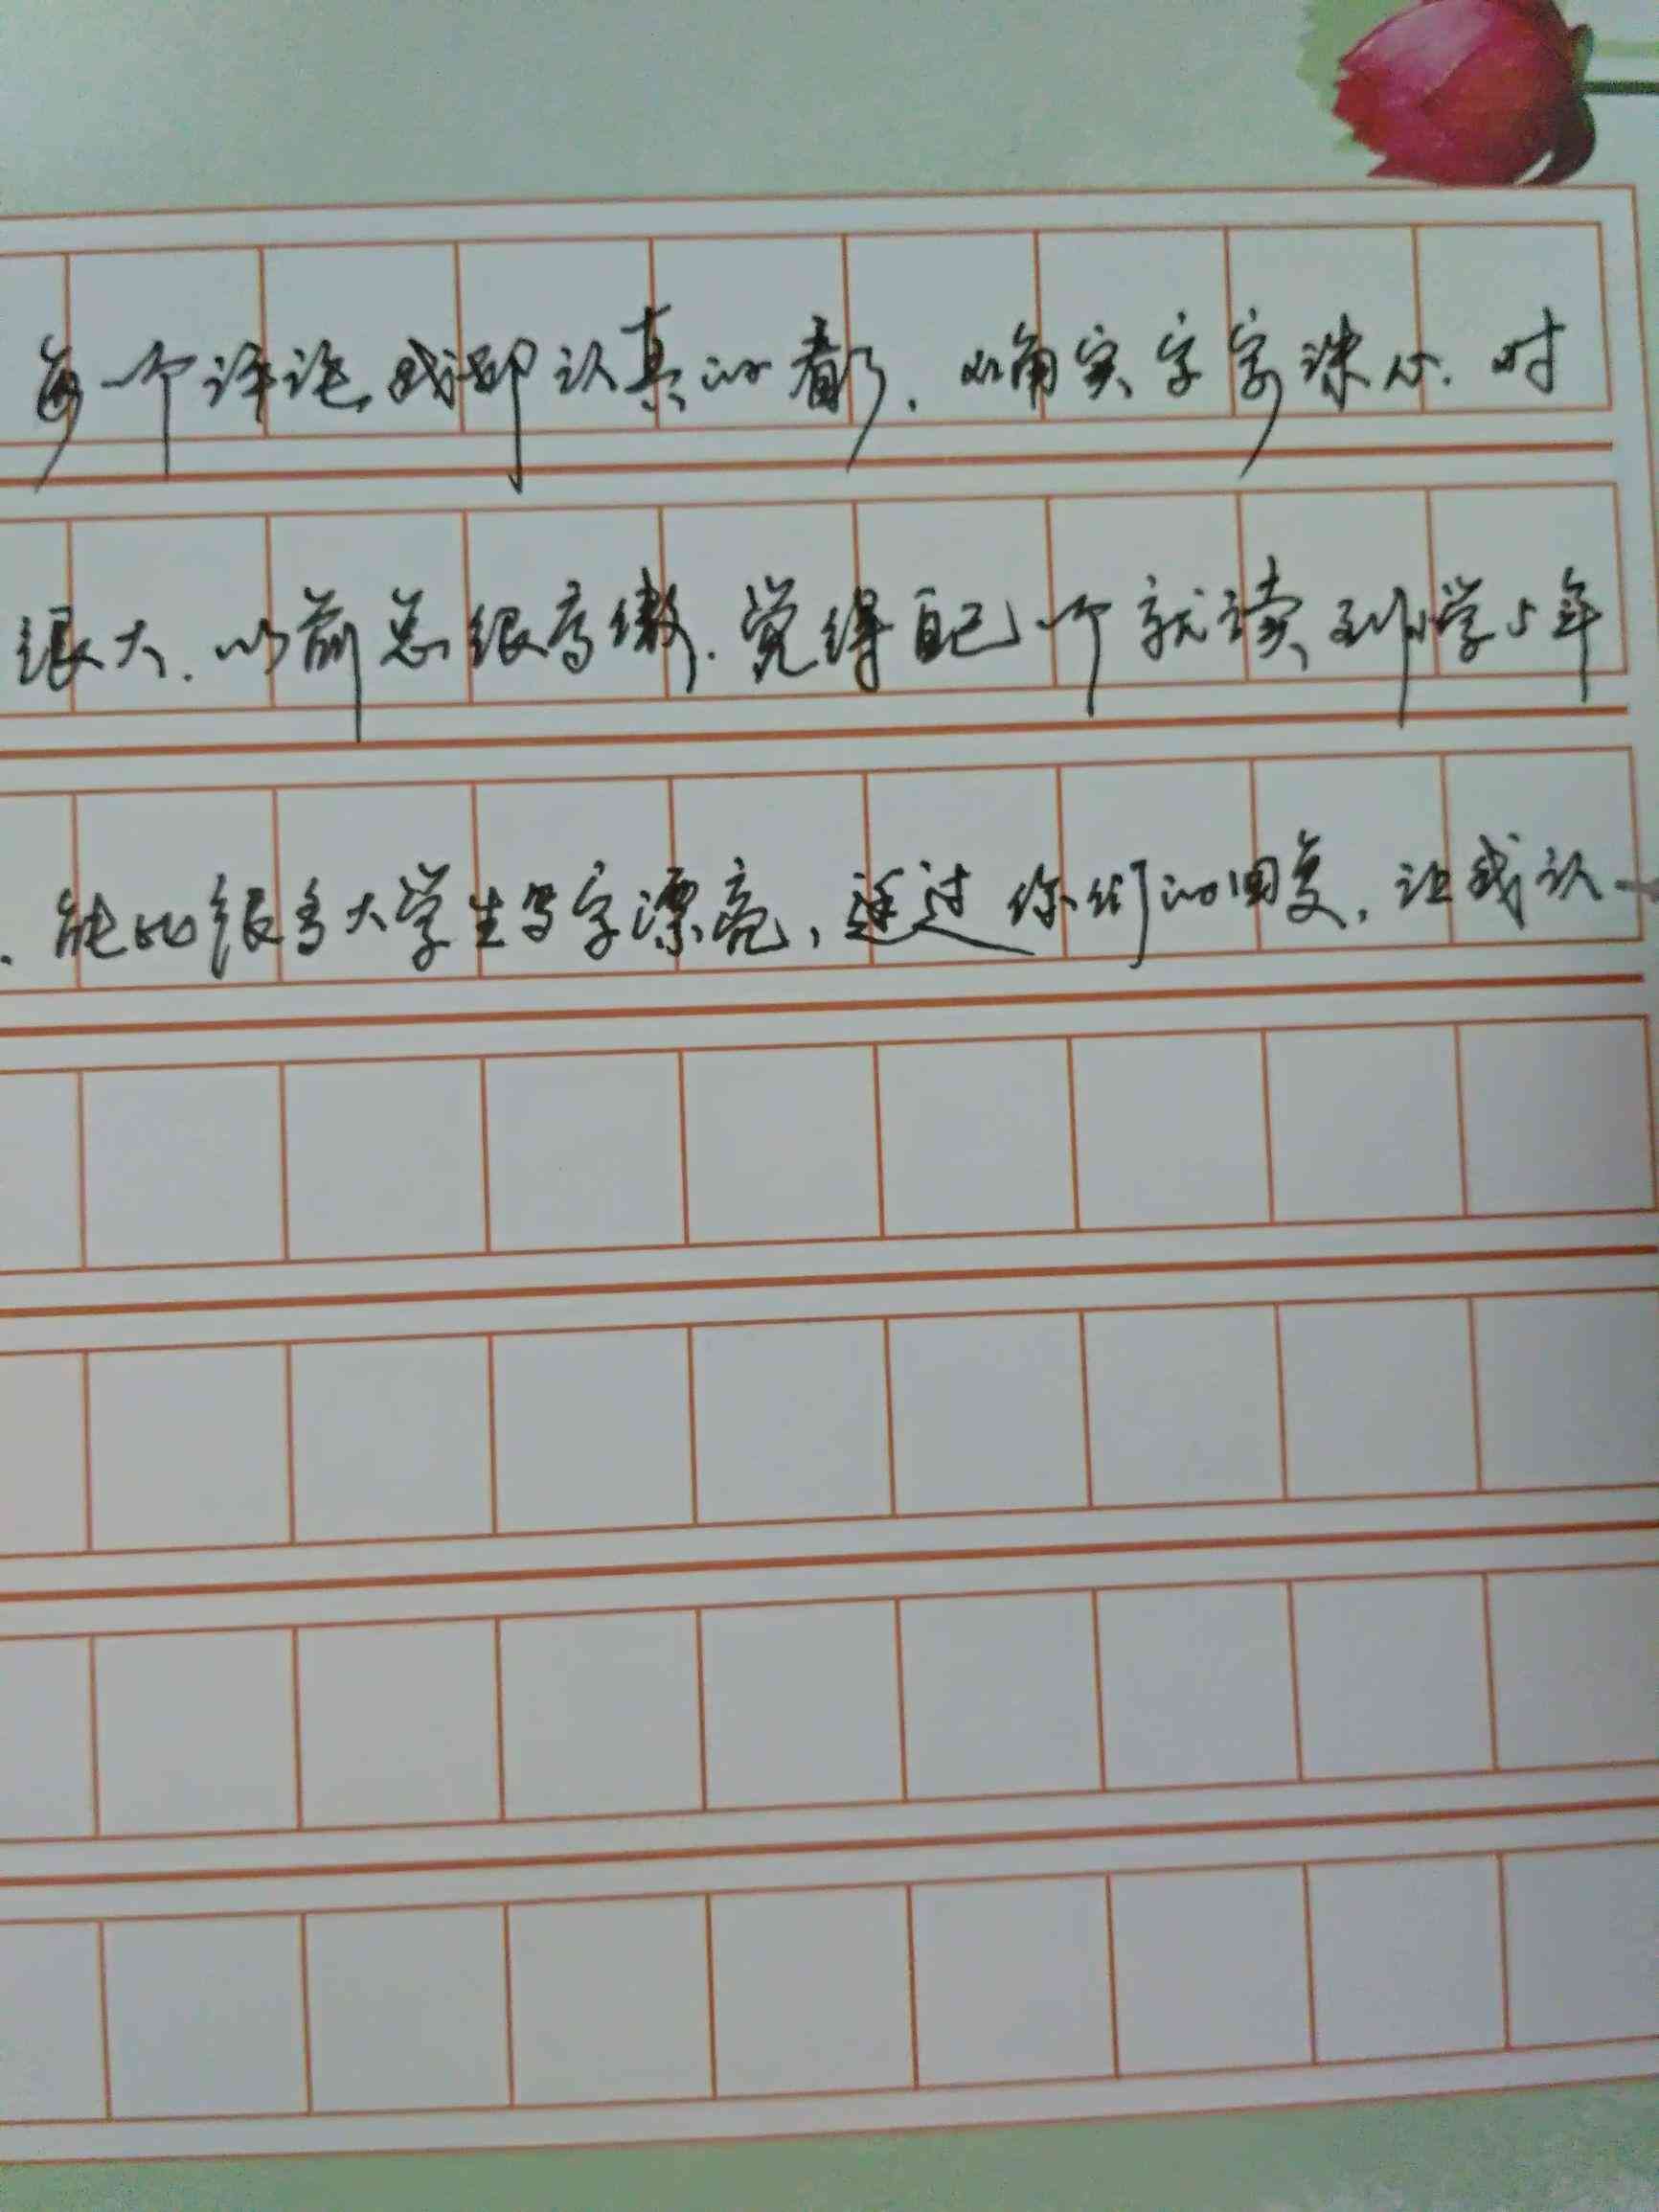 每一个评论,我都认真的看了.的确实字字诛心.对
很大.以前总很高傲.觉得自己一个就读到小学5年
.能比很多大学生写字漂亮,通过你们的回复,让我认